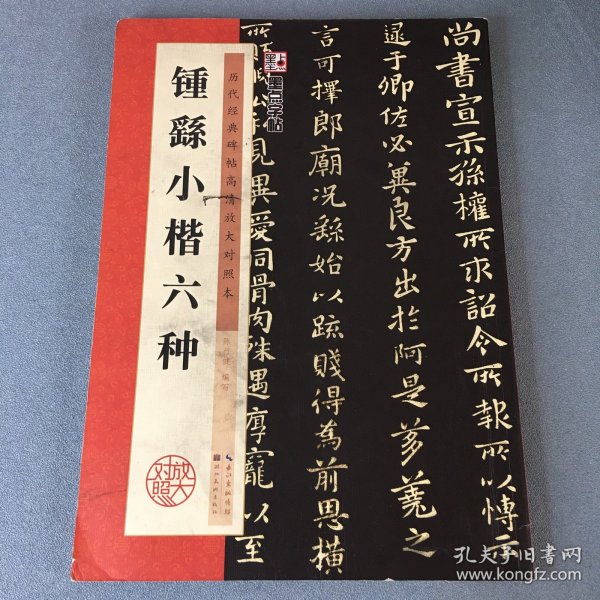 锺繇小楷六种
历代经典碑帖高清放大对照本
编写
放大对照
长江出版传媒
湖北美术出版社
墨点
墨点字帖
尚書宣示孫權所求詔令所報所以博示
逮于卿佐必冀良方出於阿是芻蕘之
言可擇郎廟況繇始以疏賤得為前恩橫
所眄公私見異愛同骨肉殊遇厚寵以至
孔夫子旧书网
www.kongfz.com